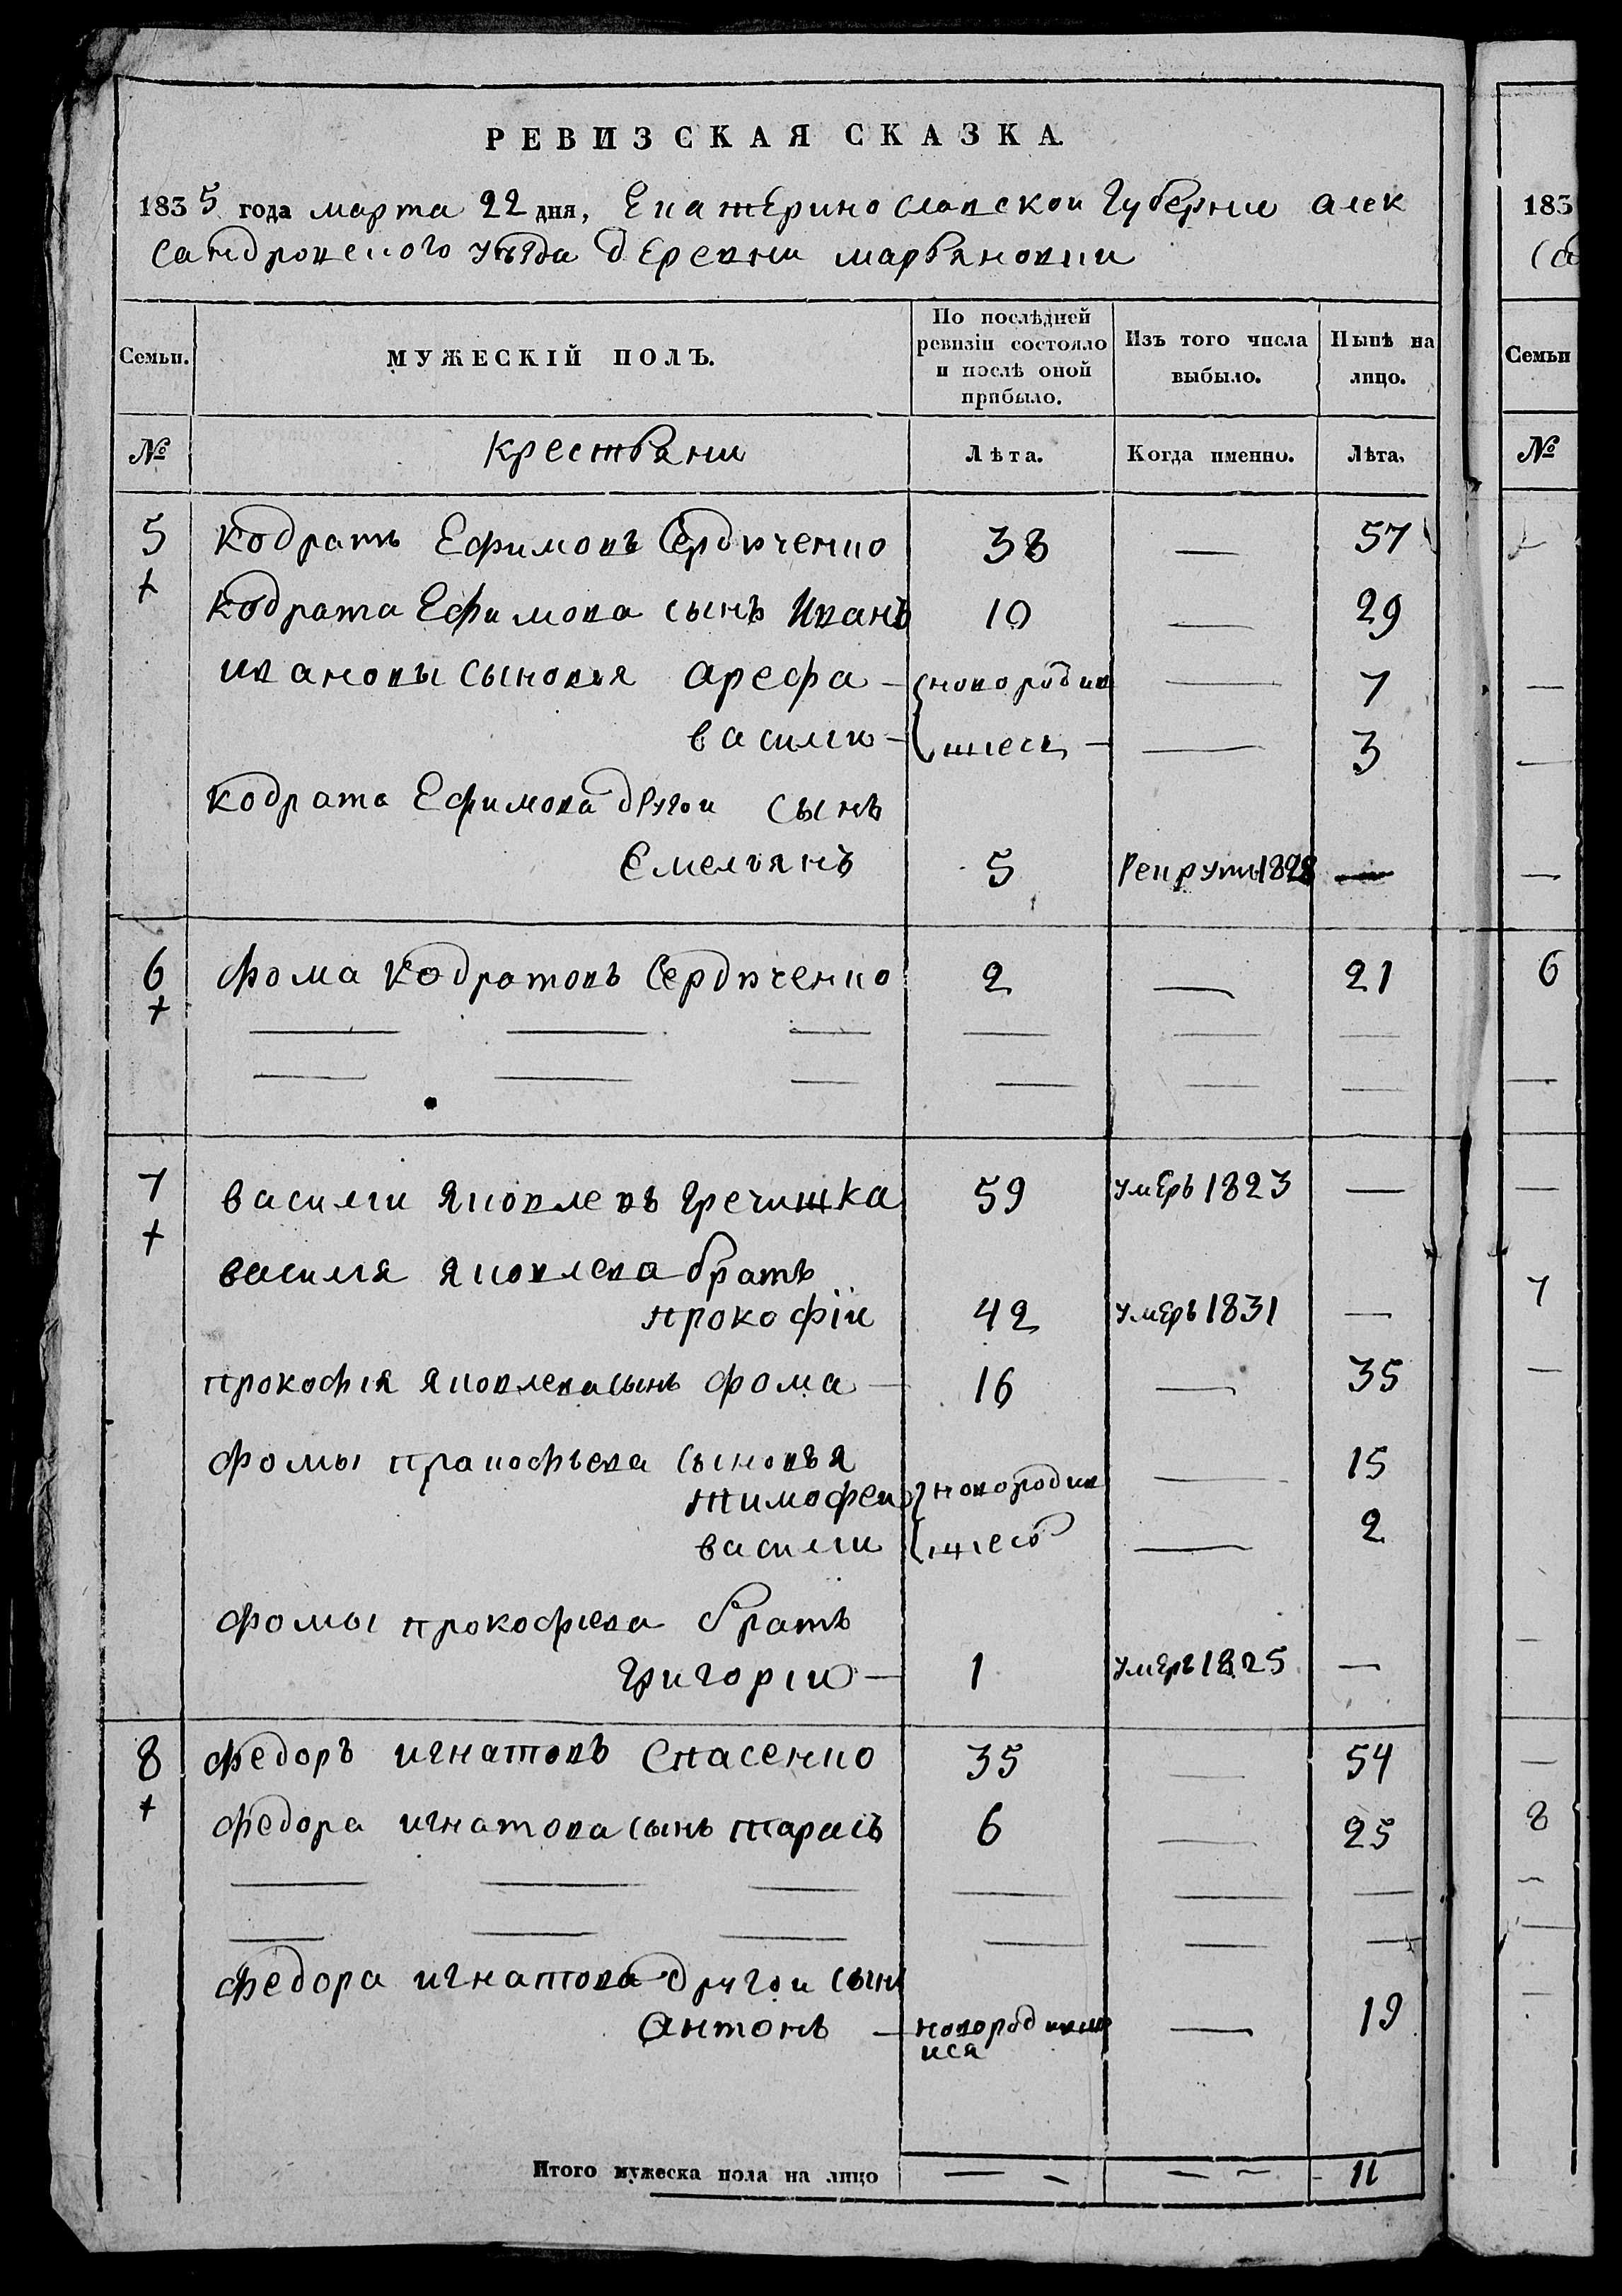 РЕВИЗСКАЯ СКАЗКА.
1835 года марта 22 дня, Екатеринославской Губернии алек
сандровского уѣзда деревни марьяновки
Семьи.
МУЖЕСКІЙ ПОЛЪ.
По послѣдней ревизіи состояло и послѣ оной прибыло.
Изъ того числа выбыло.
Нынѣ на лицо.
№ крестьяни Лѣта. Когда именно. Лѣта.
5 кодратъ Ефимовъ Сердюченко 38 — 57
кодрата Ефимова сынъ Иванъ 10 — 29
ивановы сыновья арефа — новородив — 7
василию — шиесь — — 3
кодрата Ефимова другои сынъ
Емельянъ 5 Рекрутъ 1828 —
6 фома кодратовъ Сердюченко 2 — 21
7 василии яковлевъ гречишка 59 умеръ 1823 —
василия яковлева братъ
прокофіи 42 умеръ 1831 —
прокофия яковлева сынъ фома — 16 — 35
фомы пракофьева сыновья — 15
тимофеи новородив
василии шиесь — 2
фомы прокофиева братъ
григорию — 1 умеръ 1825 —
8 федоръ игнатовъ Спасенко 35 — 54
федора игнатова сынъ тарасъ 6 — 25
федора игнатова другои сынъ
антонъ — новородивши — 19
ися
Итого мужеска пола на лицо — — — — 11
183
Семьи
№
6
7
8